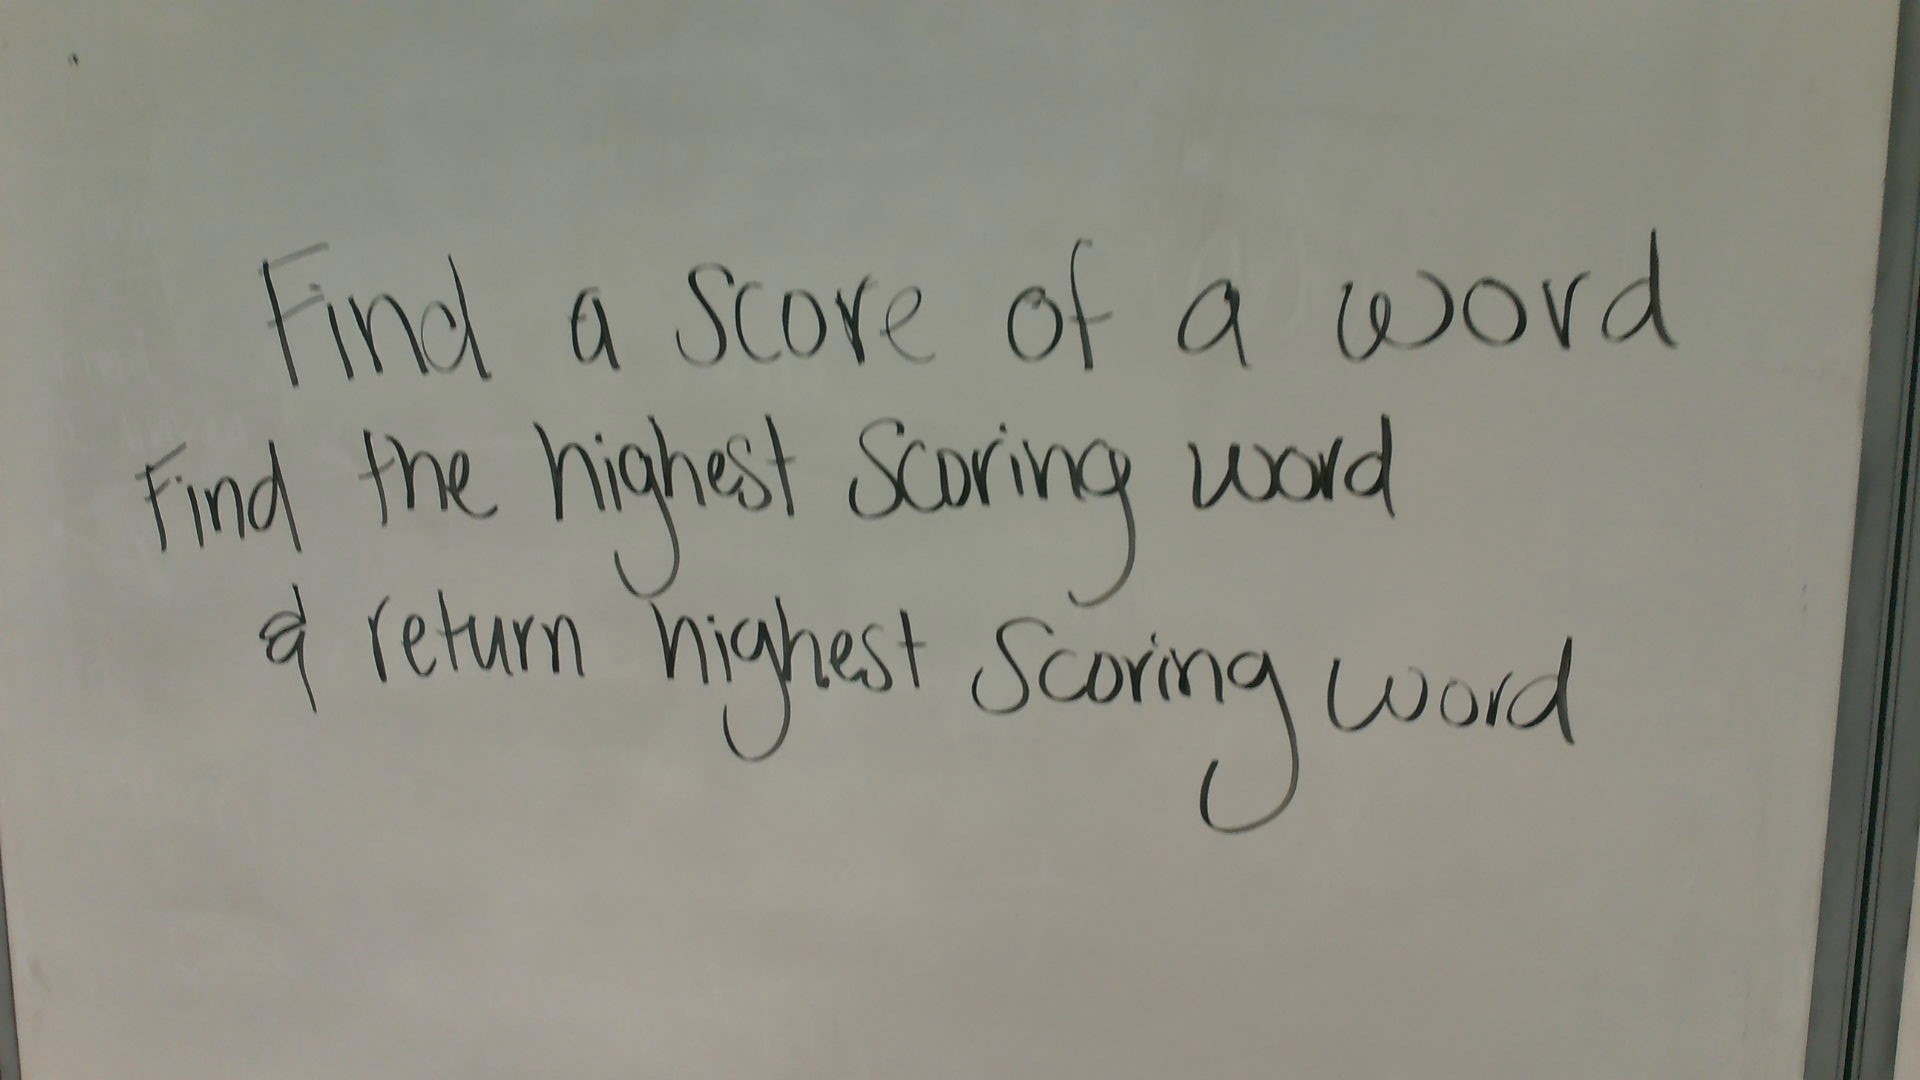 Find a score of a word
Find the highest scoring word
& return highest scoring word